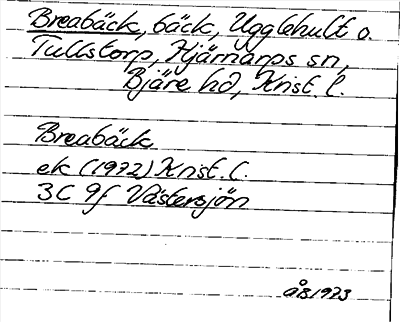 Breabäck, bäck, Ugglehult o.
Tullstorp, Hjärnarps sn,
Bjäre hd, Krist. l.
Breabäck
ek (1972) Krist. l.
3C 9f Västersjön
ÅB 1973